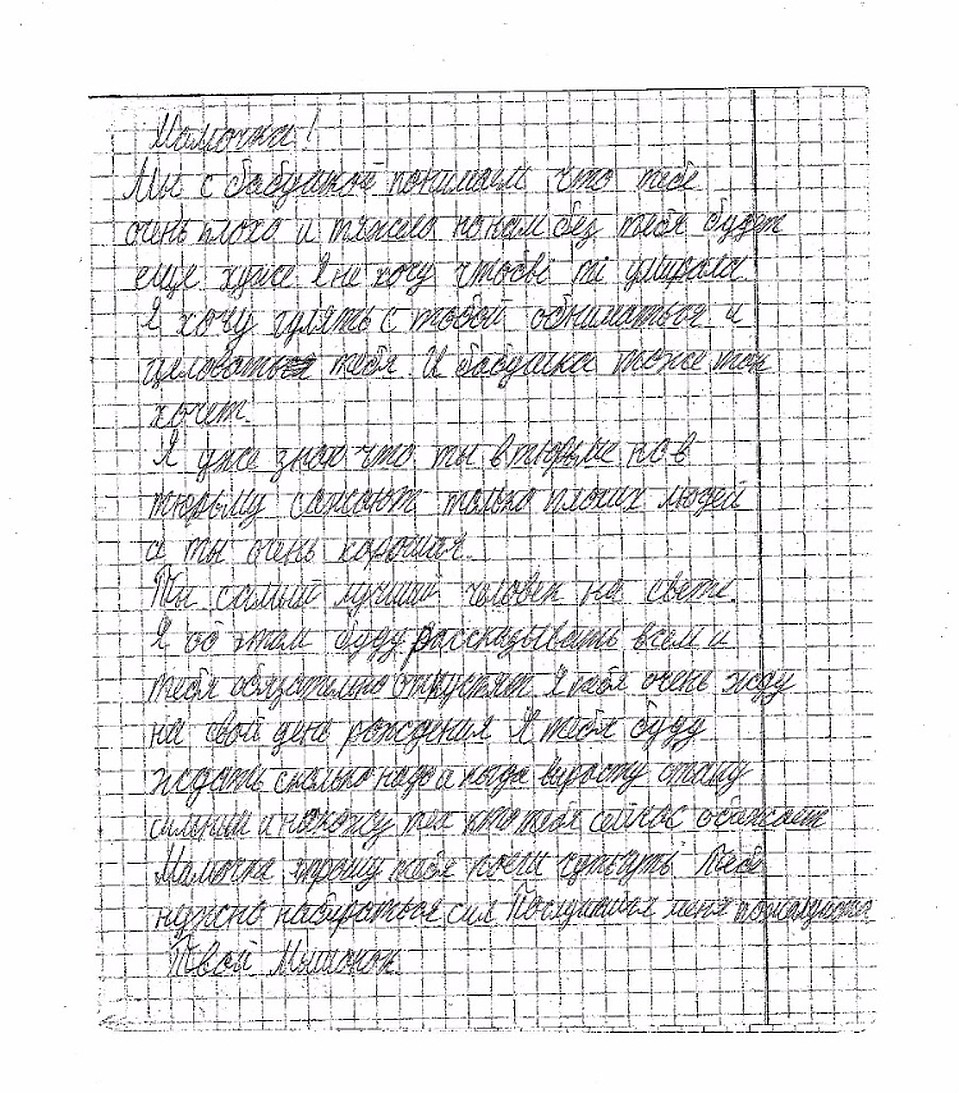 Мамочка!
Мы с бабушкой понимаем, что тебе
очень плохо и тяжело но нам без тебя будет
еще хуже Я не хочу чтобы ты умирала.
Я хочу гулять с тобой обниматься и
целовать тебя. И бабушка тоже так
хочет.
Я уже знаю что ты в тюрьме но в
тюрьму сажают только плохих людей
а ты очень хорошая.
Ты самый лучший человек на свете.
Я об этом буду рассказывать всем и
тебя обязательно отпустят. Я тебя очень жду
на свой день рождения Я тебя буду
ждать сколько надо и когда вырасту стану
сильным и накажу тех кто тебя сейчас обижает
Мамочка прошу тебя поешь Тебе
нужно набираться сил Послушайся меня пожалуйста
Твой Мышонок.